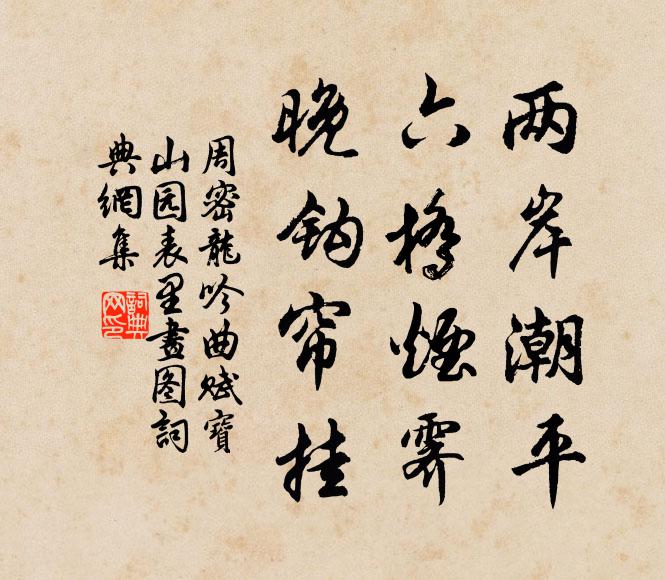 两岸潮平
六橋煙霽
晚钩帘挂
周密龍吟曲赋寶
山园表里畫图詞
典網集
詞典网印